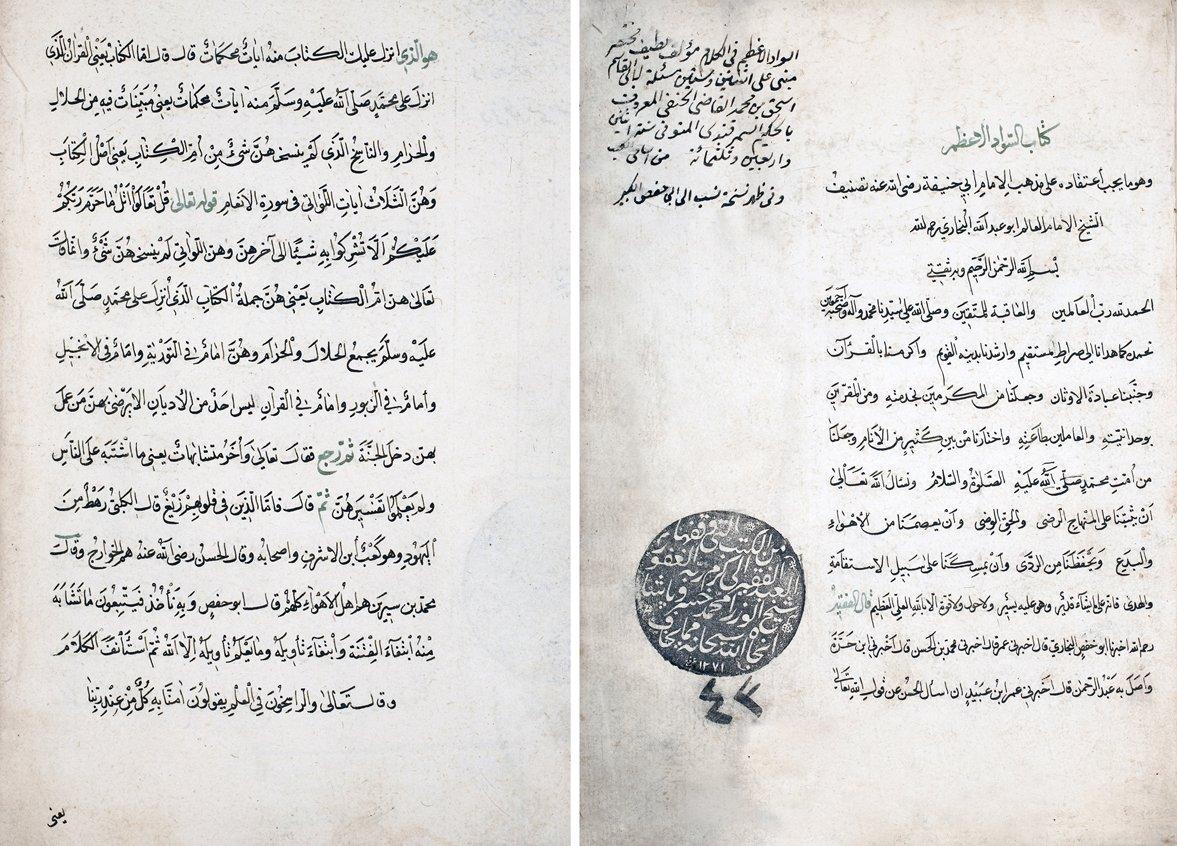 كتاب السواد الاعظم
وهو ما يجب اعتقاده على مذهب الامام ابي حنيفة رضى الله عنه تصنيف
الشيخ الامام العالم ابو عبد الله البخارى رحم الله
بسم الله الرحمن الرحيم وبه ثقتي
الحمد لله رب العالمين والعاقبة للمتقين وصلى الله على سيدنا محمد وآله وصحبه اجمعين
نحمده كما هدانا الى صراط مستقيم وارشدنا بدينه القويم واكرمنا بالقرآن
وجنبنا عبادة الاوثان وجعلنا من المكرمين بخدمته ومن المقرين
بوحدانيته والعاملين بطاعته واختارنا من بين كثير من الانام وجعلنا
من امت محمد صلى الله عليه الصلوة والسلام ونسال الله تعالى
ان يثبتنا على المنهاج الرضى والحق الوضى وان يعصمنا من الاهواء
والبدع ويحفظنا من الردى وان يمسكنا على سبيل الاستقامة
والهدى فانه على ما يشاء قدير وهو عليه يسير ولا حول ولا قوة الا بالله العلى العظيم قال الفقيه
رحم الله اخبرنا ابو حفص البخارى قال اخبرنى عمر قال اخبرنى محمد بن الحسن قال اخبرنى ابن حمزة
واصل به عبد الرحمن قال اخبرنى عمر ابن عبيد ان اسال الحسن عن قول الله تعالى
السواد الاعظم في الكلام مؤلف لطيف مختصر
مبنى على اثنتين وستين مسئلة لابى القاسم
اسحق بن محمد القاضى الحنفى المعروف
بالحكيم السمرقندى المتوفى سنة اثنتين
واربعين وثلثمائة من اسامى الكتب
وفى ظهر نسخة نسب الى ابى حفص الكبير
من الكتب التى وقفها
العبد الفقير الى كرم ربه الغفور
شيخ الوزرا محمد خسرو پاشا
سبحانه
١٢٧١
٤٢
هو الذى انزل عليك الكتاب منه ايات محكمات قال قال اما الكتاب يعنى القران الذى
انزل على محمد صلى الله عليه وسلم منه ايات محكمات يعنى مبينات فيه من الحلال
والحرام والناسخ الذى لم ينسخ هن شئ من ام الكتاب يعنى اصل الكتاب
وهن الثلاث ايات اللواتى فى سورة الانعام قوله تعالى قل تعالوا اتل ما حرم ربكم
عليكم الا تشركوا به شيئا الى آخرهن وهن اللواتى لم ينسخ هن شئ وانما قال
تعالى هن ام الكتاب يعنى هن جملة الكتاب الذى انزل على محمد صلى الله
عليه وسلم يجمع الحلال والحرام وهن امام فى التورية وامام فى الانجيل
وامام فى الزبور وامام فى القرآن ليس احد من الاديان الا يرضى بهن من عمل
بهن دخل الجنة ثم رجع فقال تعالى واخر متشابهات يعنى ما اشتبه على الناس
ولم يعلموا تفسيرهن ثم قال فاما الذين فى قلوبهم زيغ قال الكلبى رهط من
اليهود وهو كعب ابن الاشرف واصحابه وقال الحسن رضى الله عنه هم الخوارج وقال
محمد بن سيرين هم اهل الاهواء كلهم قال ابو حفص وبه ناخذ فيتبعون ما تشابه
منه ابتغاء الفتنة وابتغاء تاويله وما يعلم تاويله الا الله ثم استانف الكلام
وقال تعالى والراسخون فى العلم يقولون امنا به كل من عند ربنا
يعنى